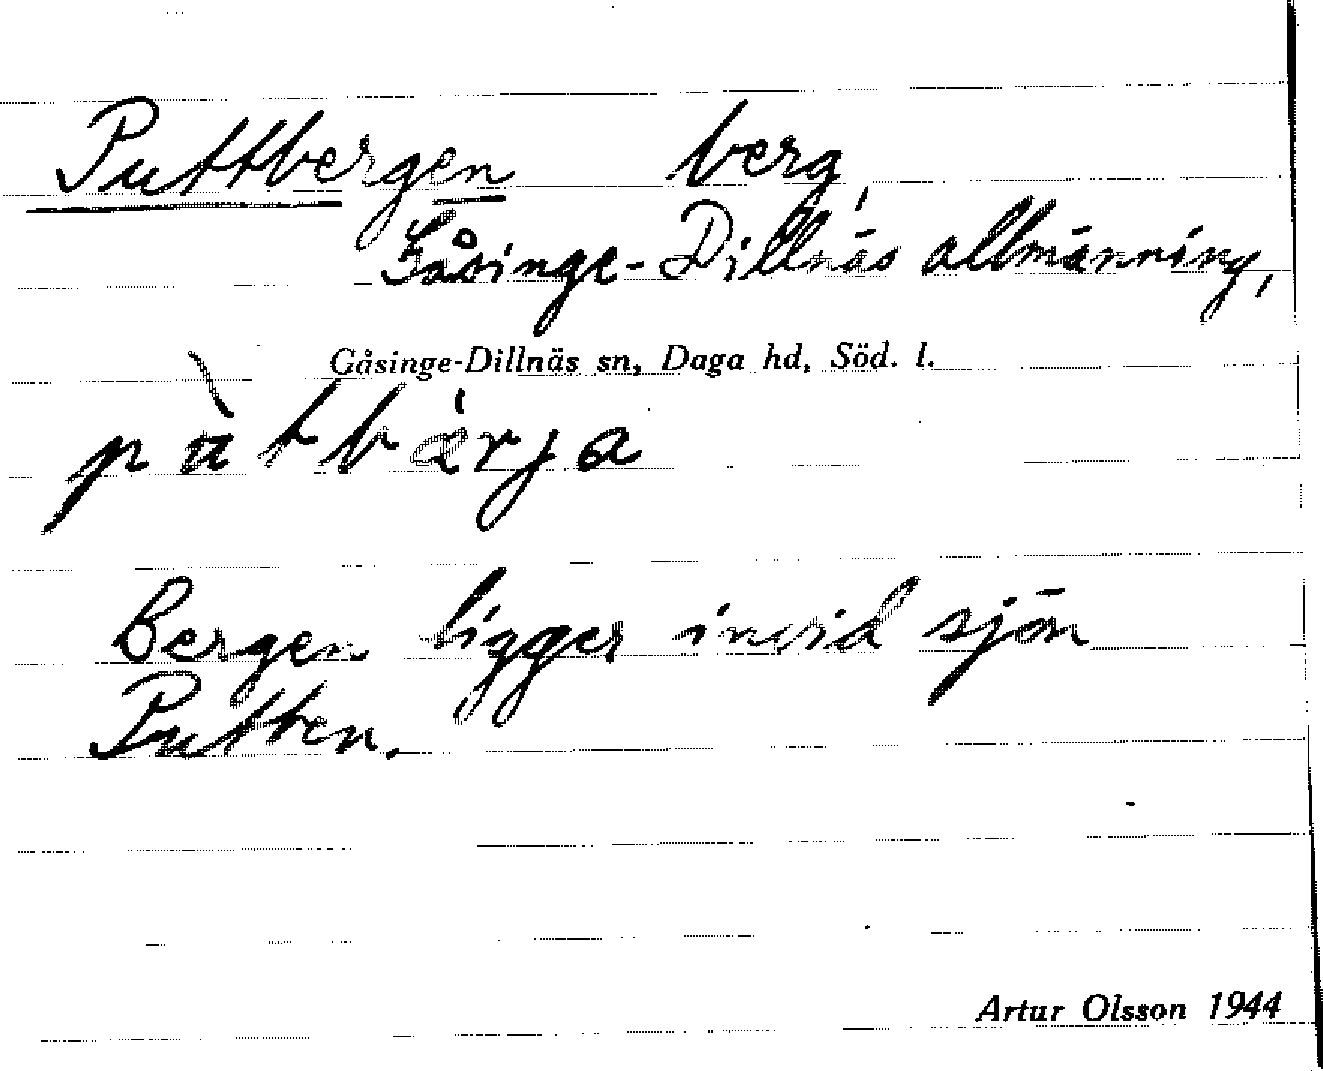 Puttbergen berg,
Gåsinge-Dillnäs allmänning,
Gåsinge-Dillnäs sn, Daga hd, Söd. l.
pùtbárja
Bergen ligger invid sjön
Putten.
Artur Olsson 1944